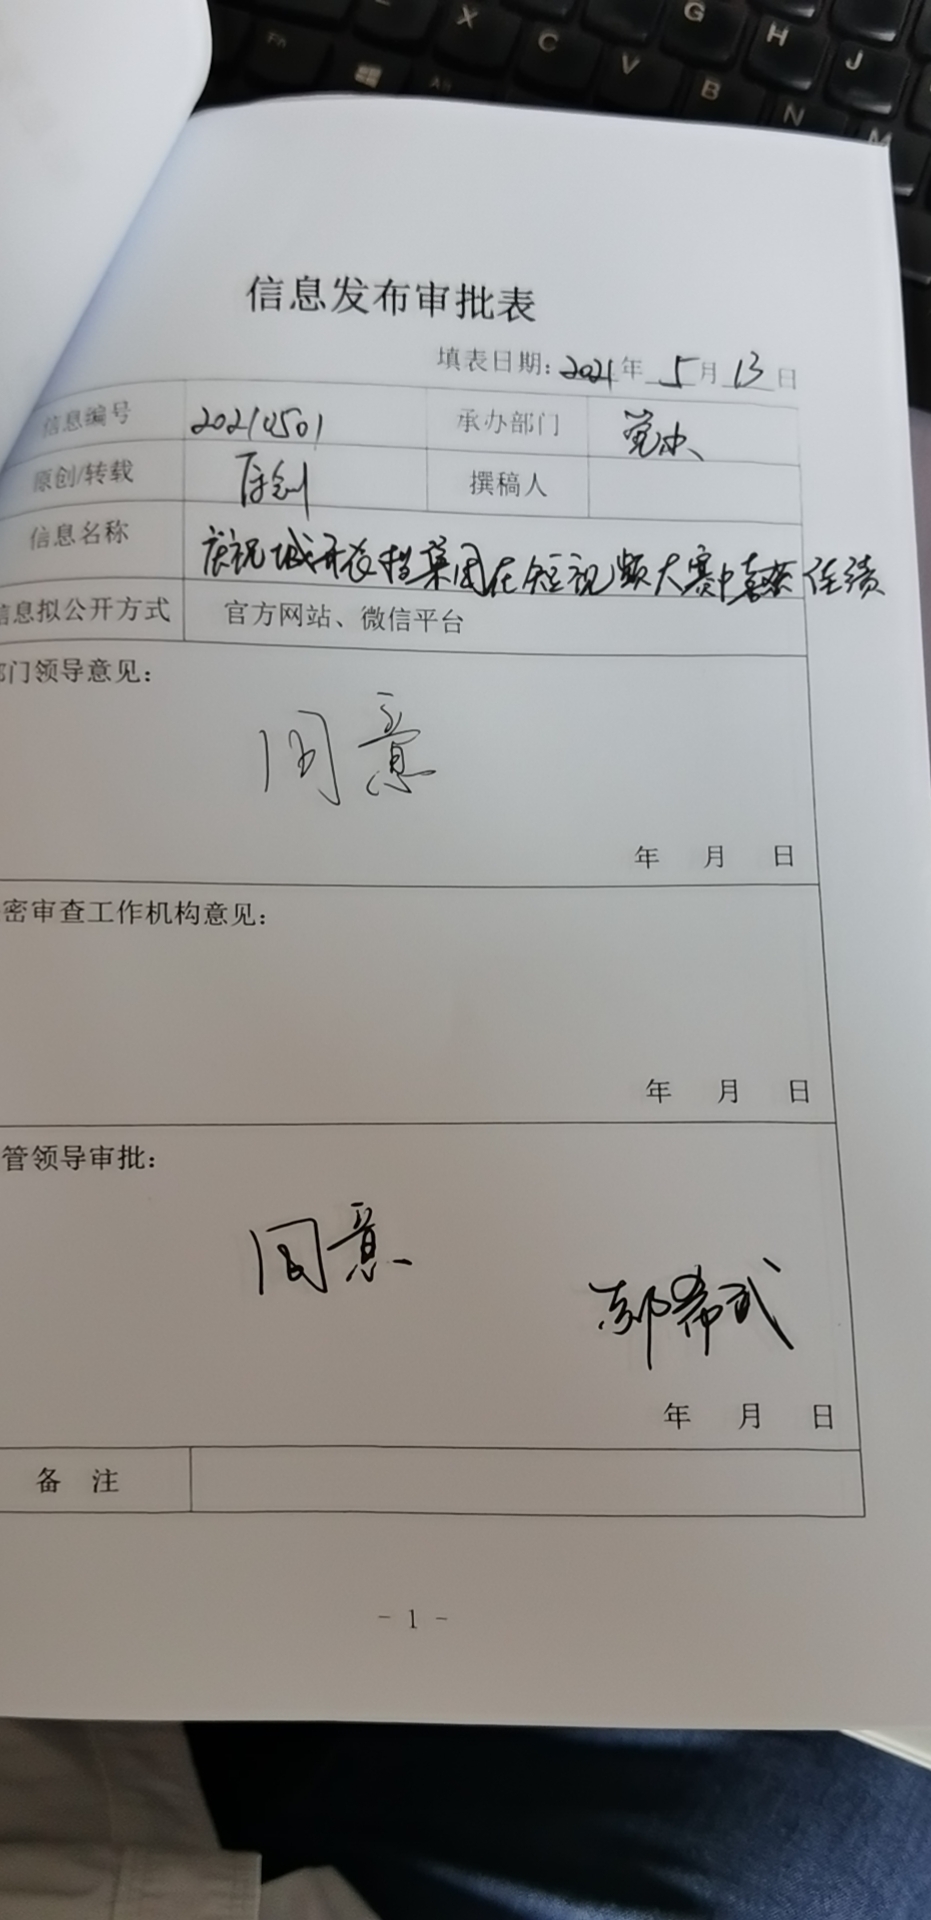 信息发布审批表
填表日期：2021年 5月 13日
信息编号 20210501 承办部门 党办
原创/转载 原创 撰稿人
信息名称 庆祝城开农投集团在短视频大赛中喜获佳绩
信息拟公开方式 官方网站、微信平台
部门领导意见：
同意
年 月 日
密审查工作机构意见：
年 月 日
管领导审批：
同意
郭希武
年 月 日
备 注
- 1 -
G
X
H
C
J
Fn
V
B
Alt
N
M